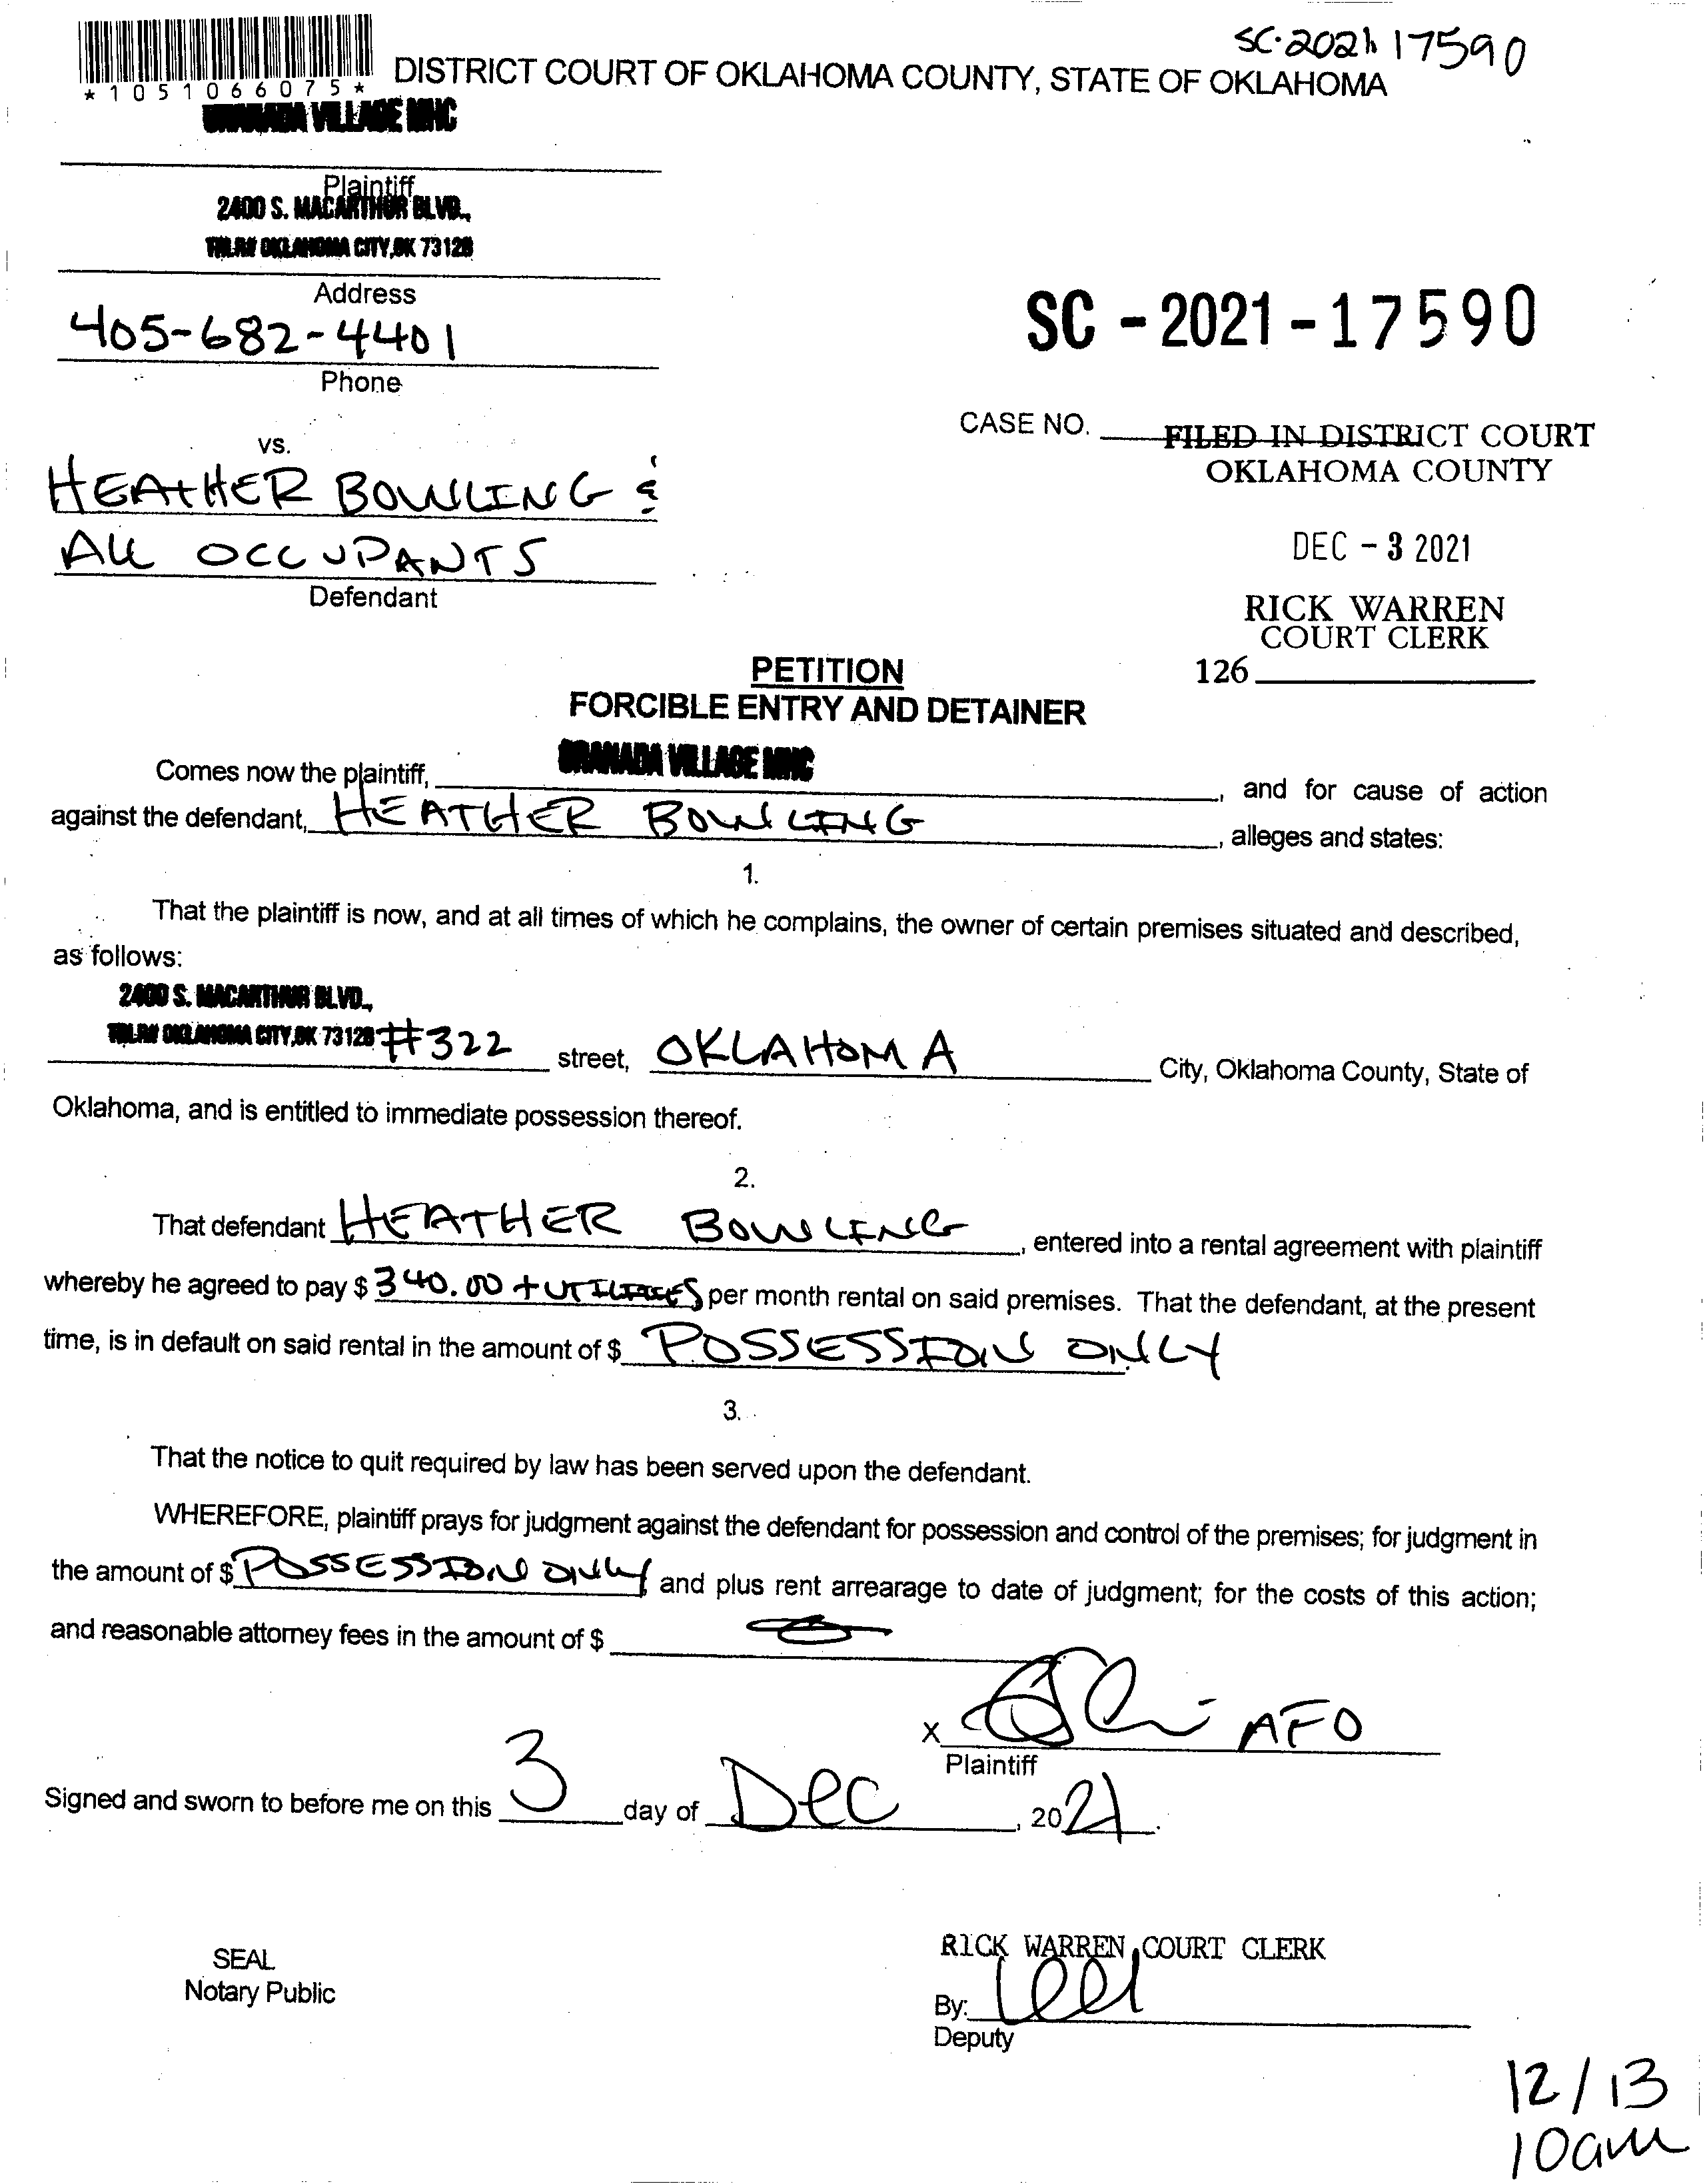 SC-2021-17590
*1051066075*
DISTRICT COURT OF OKLAHOMA COUNTY, STATE OF OKLAHOMA
GRANADA VILLAGE MHC
Plaintiff
2400 S. MACARTHUR BLVD.,
OKLAHOMA CITY, OK 73128
Address
405-682-4401
Phone
SC - 2021 - 17590
CASE NO.
FILED IN DISTRICT COURT
OKLAHOMA COUNTY
vs.
HEATHER BOWLING &
ALL OCCUPANTS
Defendant
DEC - 3 2021
RICK WARREN
COURT CLERK
126
PETITION
FORCIBLE ENTRY AND DETAINER
Comes now the plaintiff, GRANADA VILLAGE MHC, and for cause of action
against the defendant, HEATHER BOWLING, alleges and states:
1.
That the plaintiff is now, and at all times of which he complains, the owner of certain premises situated and described,
as follows:
2400 S. MACARTHUR BLVD.,
OKLAHOMA CITY, OK 73128 #322 street, OKLAHOMA City, Oklahoma County, State of
Oklahoma, and is entitled to immediate possession thereof.
2.
That defendant HEATHER BOWLING, entered into a rental agreement with plaintiff
whereby he agreed to pay $ 340.00 + UTILITIES per month rental on said premises. That the defendant, at the present
time, is in default on said rental in the amount of $ POSSESSION ONLY
3.
That the notice to quit required by law has been served upon the defendant.
WHEREFORE, plaintiff prays for judgment against the defendant for possession and control of the premises; for judgment in
the amount of $ POSSESSION ONLY and plus rent arrearage to date of judgment; for the costs of this action;
and reasonable attorney fees in the amount of $
X AFO
Plaintiff
Signed and sworn to before me on this 3 day of Dec, 2021.
SEAL
Notary Public
RICK WARREN, COURT CLERK
By:
Deputy
12/13
10am